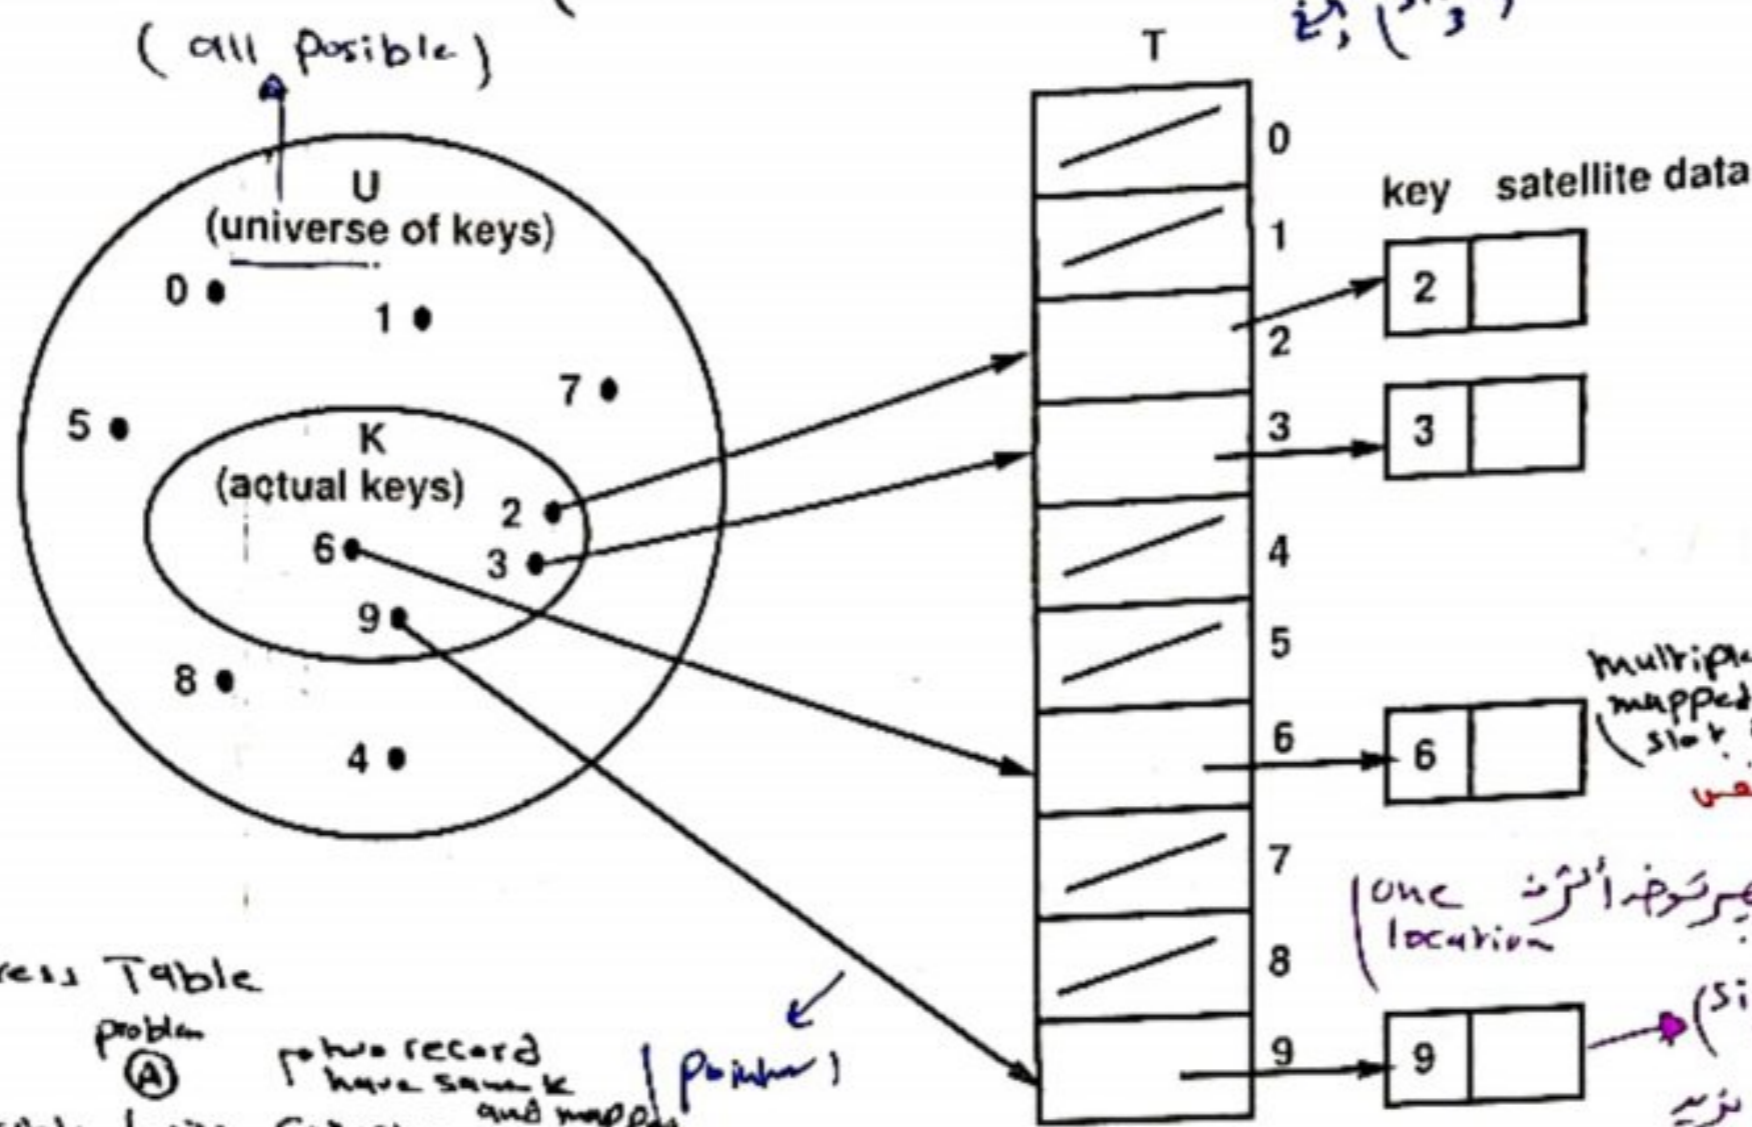 (all posible)
T
3
U
(universe of keys)
0
1
7
5
K
(actual keys)
2
6
3
9
8
4
0
1
2
3
4
5
6
7
8
9
key satellite data
2
3
6
9
multiple
mapped
slot
one
location
(si
Table
problem
A
two record
have same k
and mapped
(pointer)